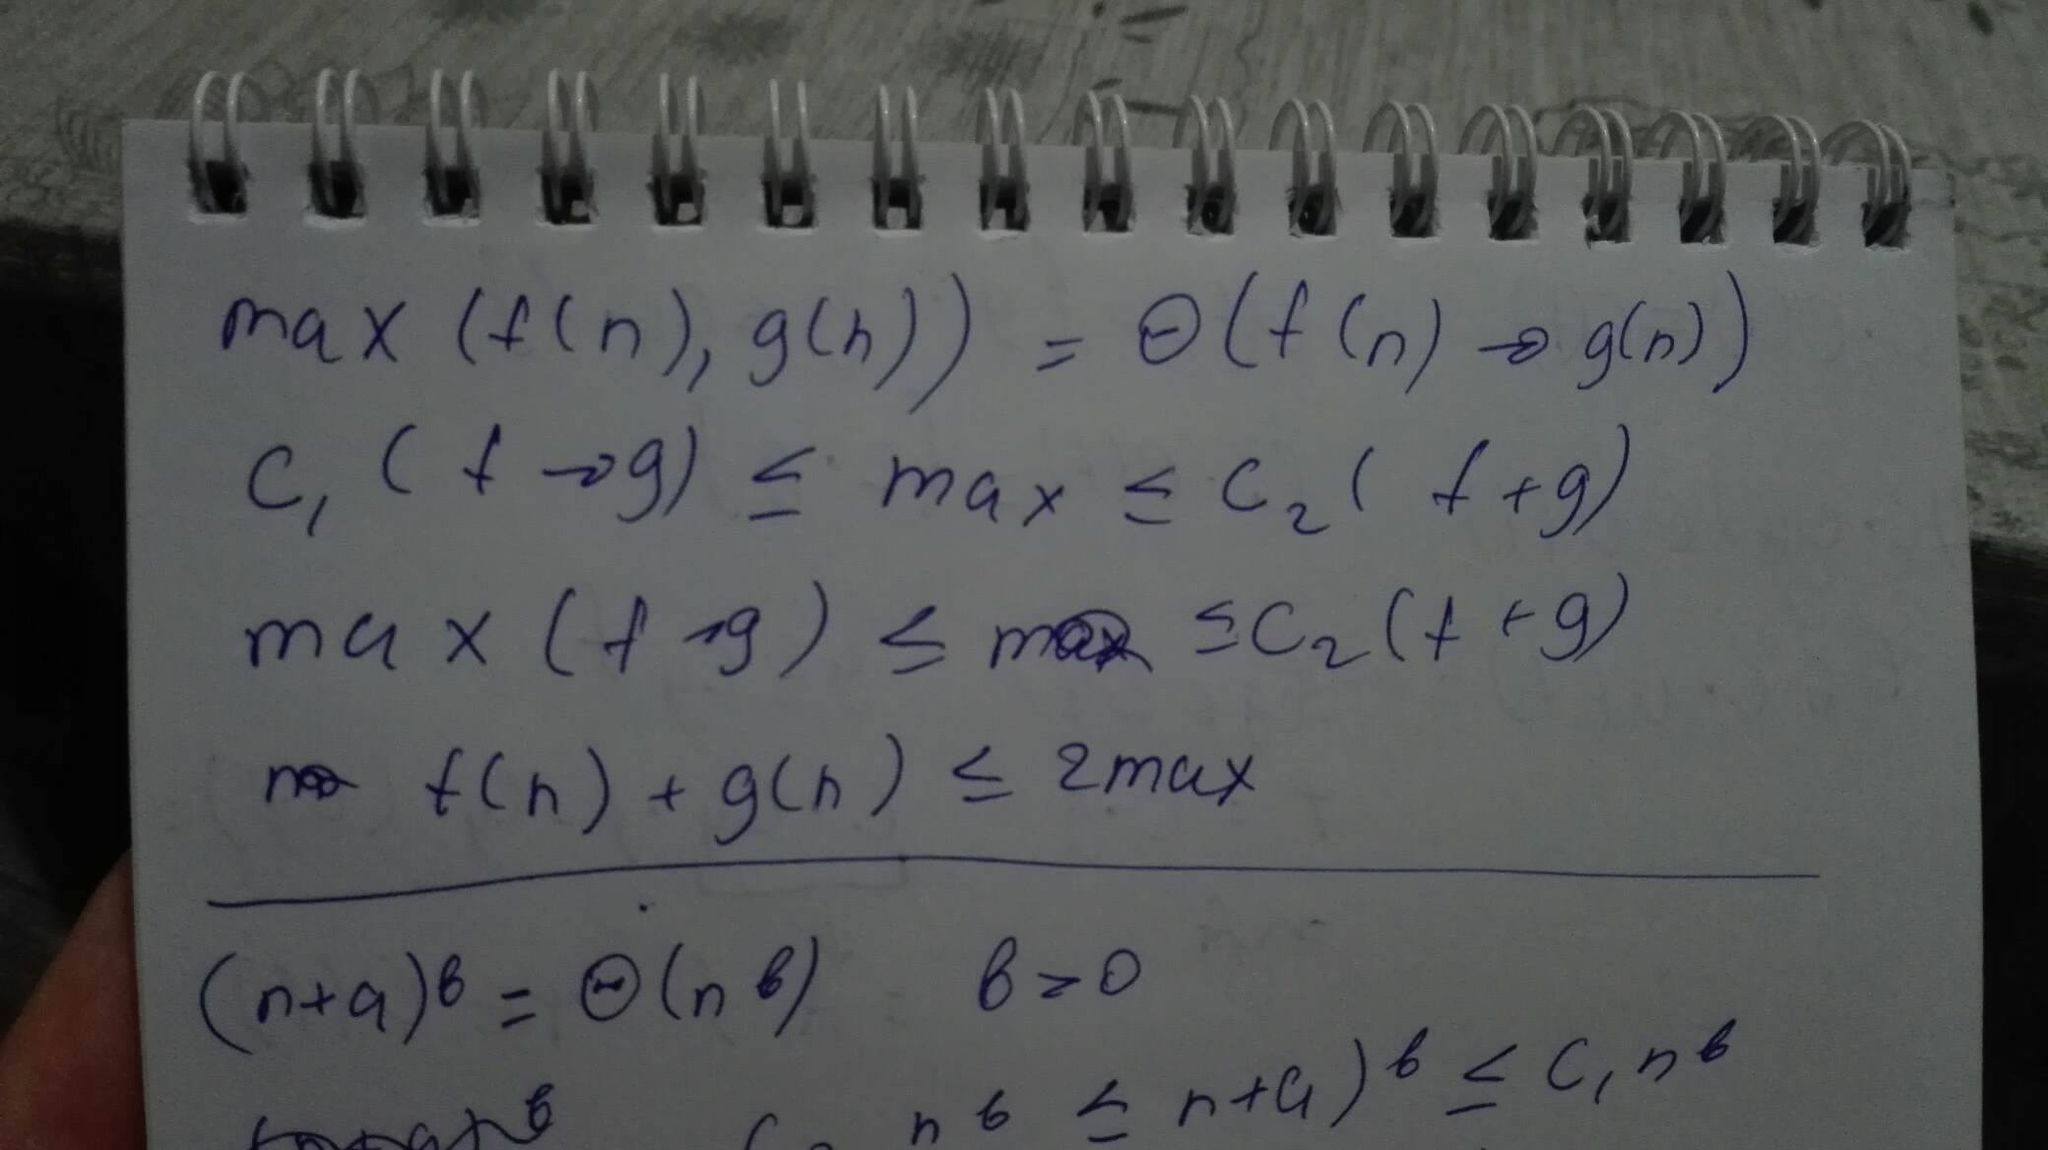 max (f(n), g(n)) = Θ(f(n) + g(n))
C₁ (f + g) ≤ max ≤ C₂ (f + g)
max (f, g) ≤ C₂ (f + g)
f(n) + g(n) ≤ 2max
(n+a)ᵇ = Θ(nᵇ) b>0
nᵇ ≤ n+a)ᵇ ≤ C₁ nᵇ